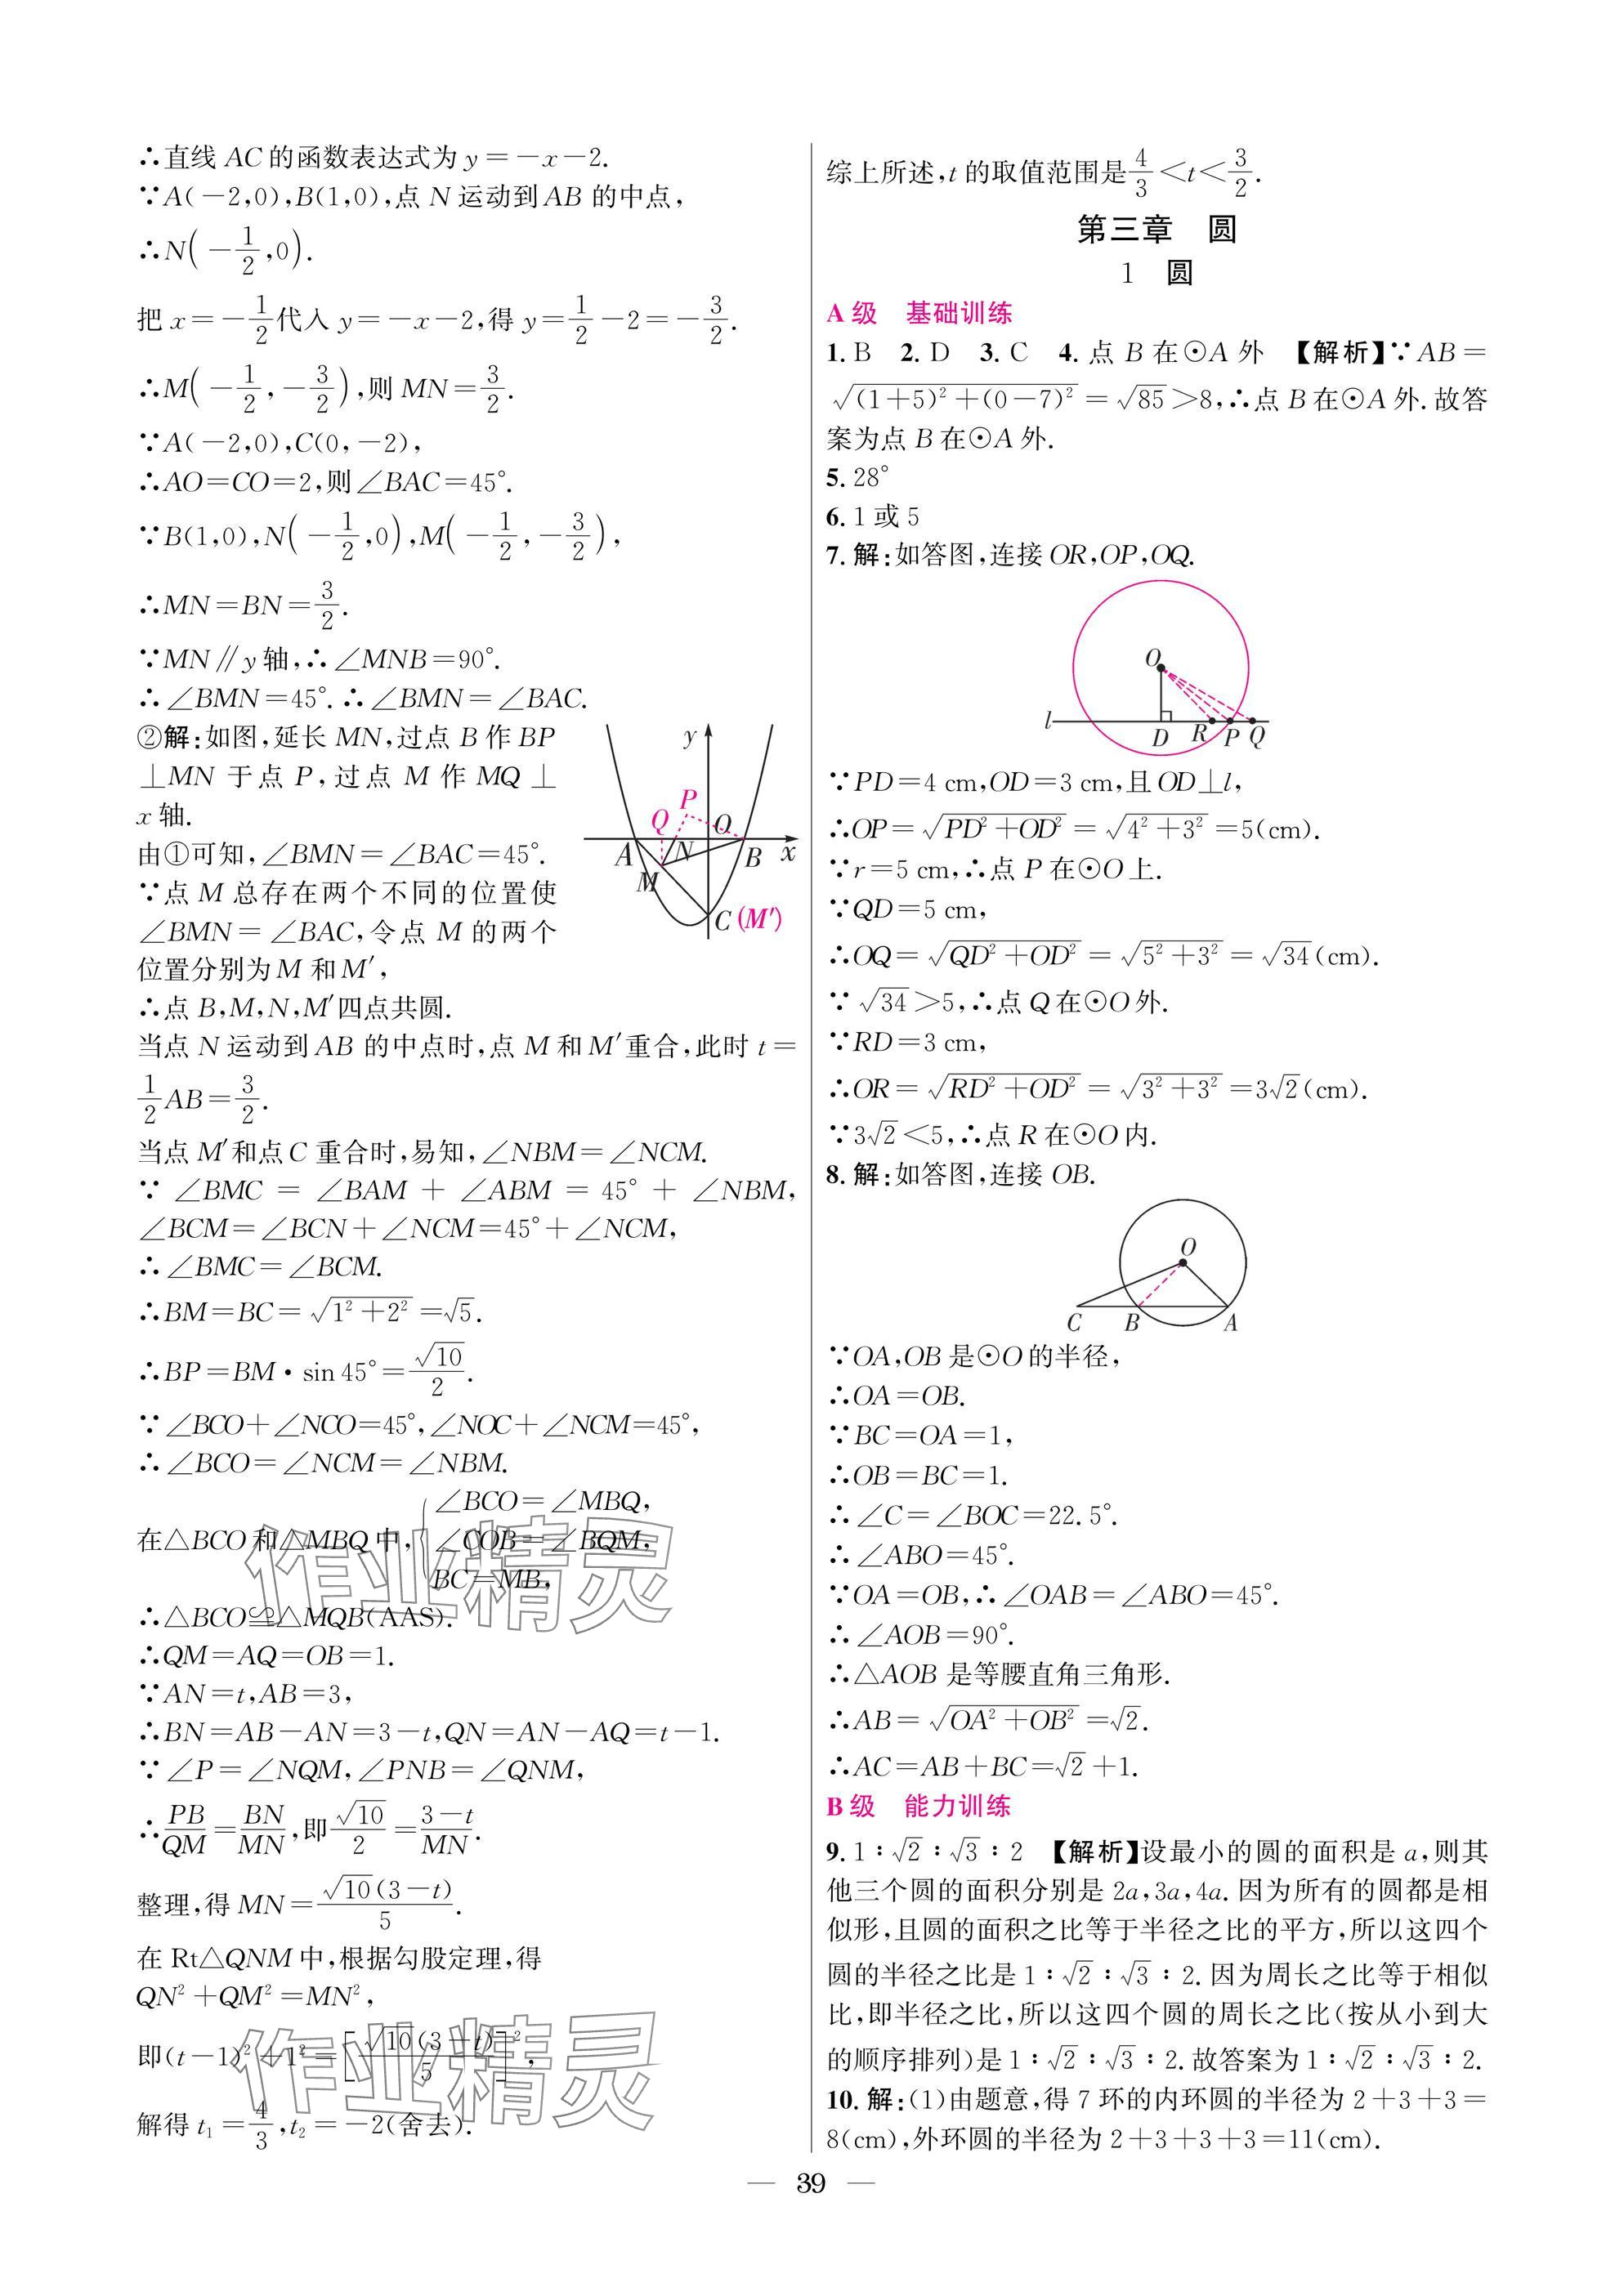 ∴直线 AC 的函数表达式为 y=-x-2.
∵A(-2,0),B(1,0),点 N 运动到 AB 的中点,
∴N(-1/2,0).
把 x=-1/2代入 y=-x-2,得 y=1/2-2=-3/2.
∴M(-1/2,-3/2),则 MN=3/2.
∵A(-2,0),C(0,-2),
∴AO=CO=2,则∠BAC=45°.
∵B(1,0),N(-1/2,0),M(-1/2,-3/2),
∴MN=BN=3/2.
∵MN∥y 轴,∴∠MNB=90°.
∴∠BMN=45°.∴∠BMN=∠BAC.
②解:如图,延长 MN,过点 B 作 BP
⊥MN 于点 P,过点 M 作 MQ⊥
x 轴.
由①可知,∠BMN=∠BAC=45°.
∵点 M 总存在两个不同的位置使
∠BMN=∠BAC,令点 M 的两个
位置分别为 M 和 M′,
y
P
Q
O
A
N
B
x
M
C(M′)
∴点 B,M,N,M′四点共圆.
当点 N 运动到 AB 的中点时,点 M 和 M′重合,此时 t=
1/2AB=3/2.
当点 M′和点 C 重合时,易知,∠NBM=∠NCM.
∵∠BMC=∠BAM+∠ABM=45°+∠NBM,
∠BCM=∠BCN+∠NCM=45°+∠NCM,
∴∠BMC=∠BCM.
∴BM=BC=√(1²+2²)=√5.
∴BP=BM·sin 45°=√10/2.
∵∠BCO+∠NCO=45°,∠NOC+∠NCM=45°,
∴∠BCO=∠NCM=∠NBM.
在△BCO 和△MBQ 中,{∠BCO=∠MBQ,
∠COB=∠BQM,
BC=MB,
∴△BCO≌△MQB(AAS).
∴QM=AQ=OB=1.
∵AN=t,AB=3,
∴BN=AB-AN=3-t,QN=AN-AQ=t-1.
∵∠P=∠NQM,∠PNB=∠QNM,
∴PB/QM=BN/MN,即√10/2=(3-t)/MN.
整理,得 MN=√10(3-t)/5.
在 Rt△QNM 中,根据勾股定理,得
QN²+QM²=MN²,
即(t-1)²+1²=[√10(3-t)/5]²,
解得 t₁=4/3,t₂=-2(舍去).
作业精灵
作业精灵
综上所述,t 的取值范围是4/3<t<3/2.
第三章 圆
1 圆
A 级 基础训练
1. B 2. D 3. C 4. 点 B 在⊙A 外 【解析】∵AB=
√((1+5)²+(0-7)²)=√85>8,∴点 B 在⊙A 外.故答
案为点 B 在⊙A 外.
5. 28°
6. 1 或 5
7. 解:如答图,连接 OR,OP,OQ.
O
l
D R P Q
∵PD=4 cm,OD=3 cm,且 OD⊥l,
∴OP=√(PD²+OD²)=√(4²+3²)=5(cm).
∵r=5 cm,∴点 P 在⊙O 上.
∵QD=5 cm,
∴OQ=√(QD²+OD²)=√(5²+3²)=√34(cm).
∵√34>5,∴点 Q 在⊙O 外.
∵RD=3 cm,
∴OR=√(RD²+OD²)=√(3²+3²)=3√2(cm).
∵3√2<5,∴点 R 在⊙O 内.
8. 解:如答图,连接 OB.
O
C B A
∵OA,OB 是⊙O 的半径,
∴OA=OB.
∵BC=OA=1,
∴OB=BC=1.
∴∠C=∠BOC=22.5°.
∴∠ABO=45°.
∵OA=OB,∴∠OAB=∠ABO=45°.
∴∠AOB=90°.
∴△AOB 是等腰直角三角形.
∴AB=√(OA²+OB²)=√2.
∴AC=AB+BC=√2+1.
B 级 能力训练
9. 1∶√2∶√3∶2 【解析】设最小的圆的面积是 a,则其
他三个圆的面积分别是 2a,3a,4a.因为所有的圆都是相
似形,且圆的面积之比等于半径之比的平方,所以这四个
圆的半径之比是 1∶√2∶√3∶2.因为周长之比等于相似
比,即半径之比,所以这四个圆的周长之比(按从小到大
的顺序排列)是 1∶√2∶√3∶2.故答案为 1∶√2∶√3∶2.
10. 解:(1)由题意,得 7 环的内环圆的半径为 2+3+3=
8(cm),外环圆的半径为 2+3+3+3=11(cm).
— 39 —